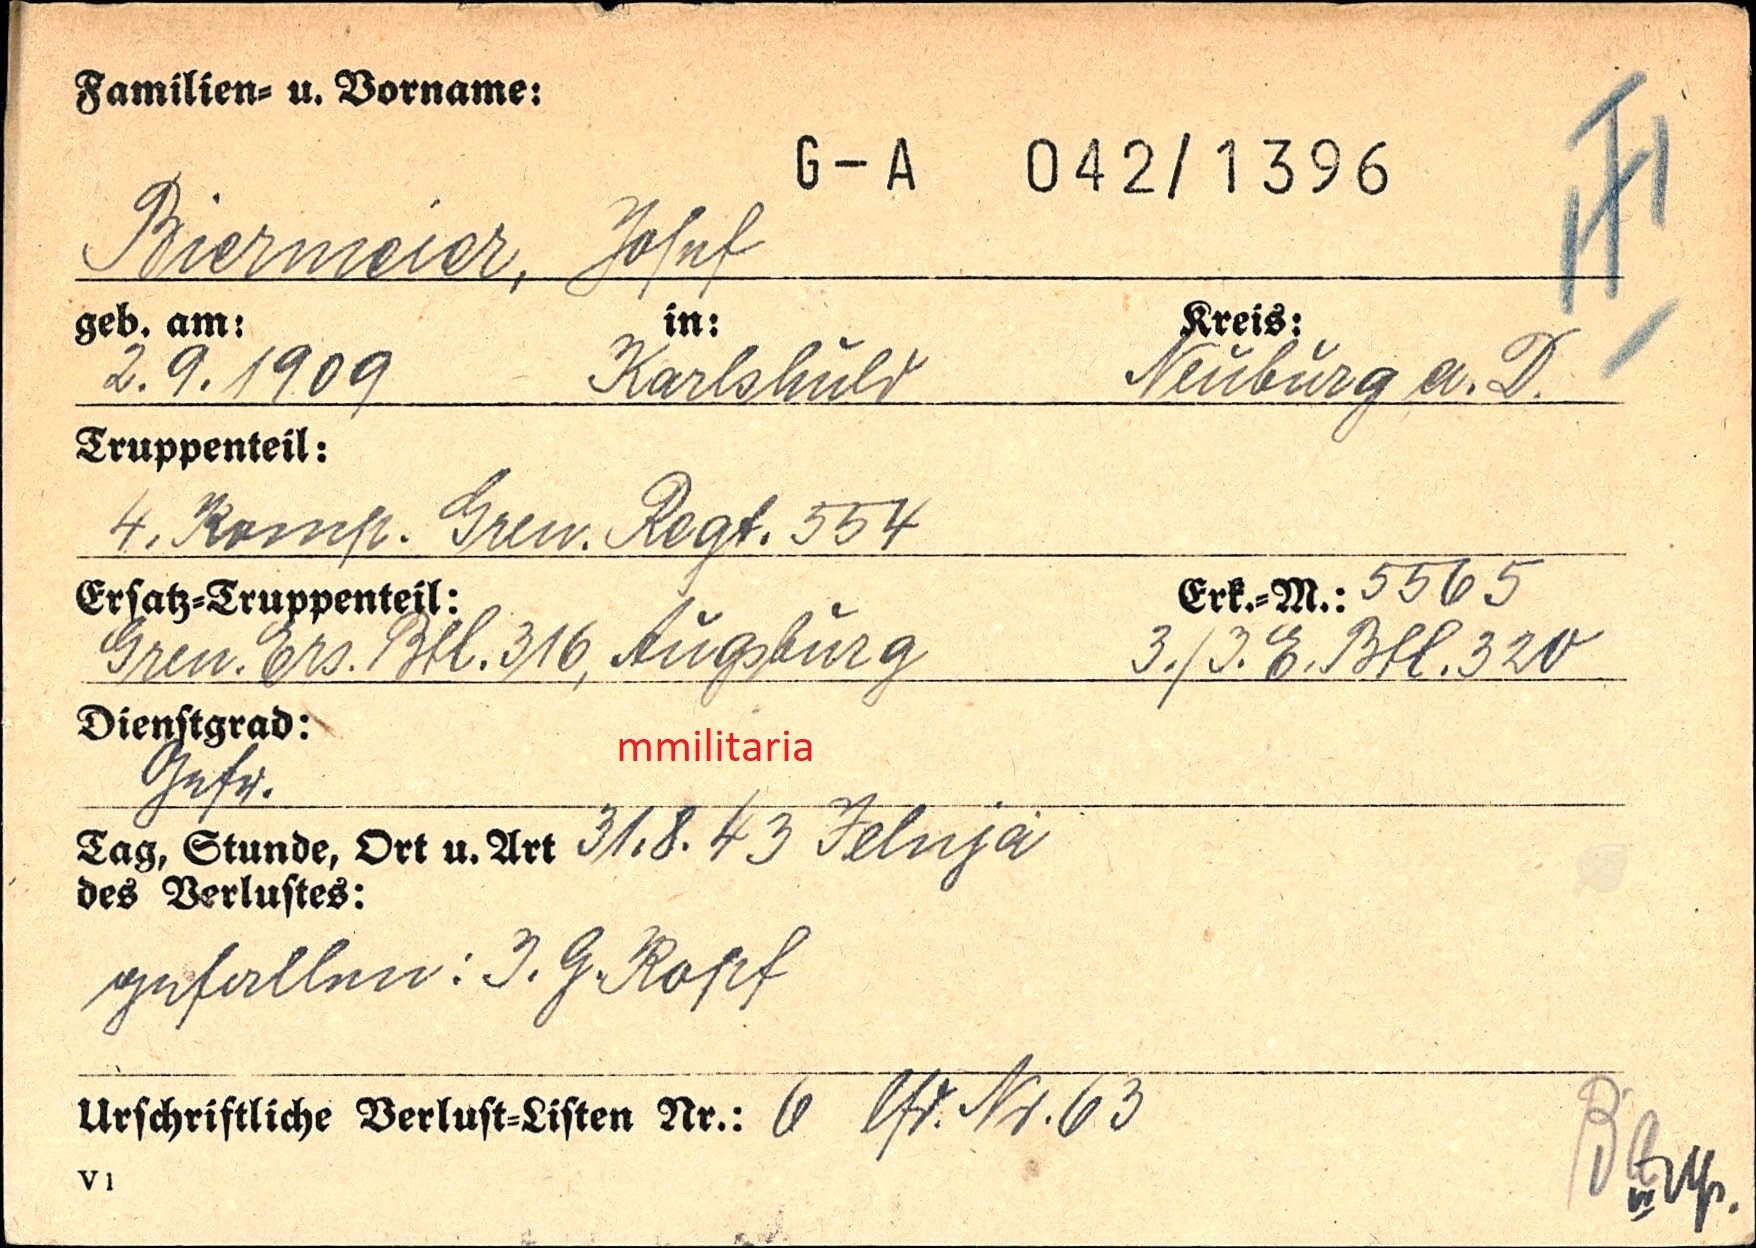 Familien- u. Vorname:
G-A 042/1396
Biermeier, Josef
geb. am: in: Kreis:
2.9.1909 Karlshuld Neuburg a. D.
Truppenteil:
4. Komp. Gren. Regt. 554
Ersatz-Truppenteil: Erk.-M.: 5565
Gren. Ers. Btl. 316, Augsburg 3./J. E. Btl. 320
Dienstgrad:
mmilitaria
Gefr.
Tag, Stunde, Ort u. Art 31.8.43 Jelnja
des Verlustes:
gefallen: J. G. Kopf
Urschriftliche Verlust-Listen Nr.: 6 lfd. Nr. 63
V 1